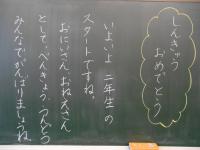 しんきゅう
おめでとう
いよいよ 二年生の
スタートですね。
おにいさん おねえさん
として、べんきょう、うんどう
みんなでがんばりましょうね